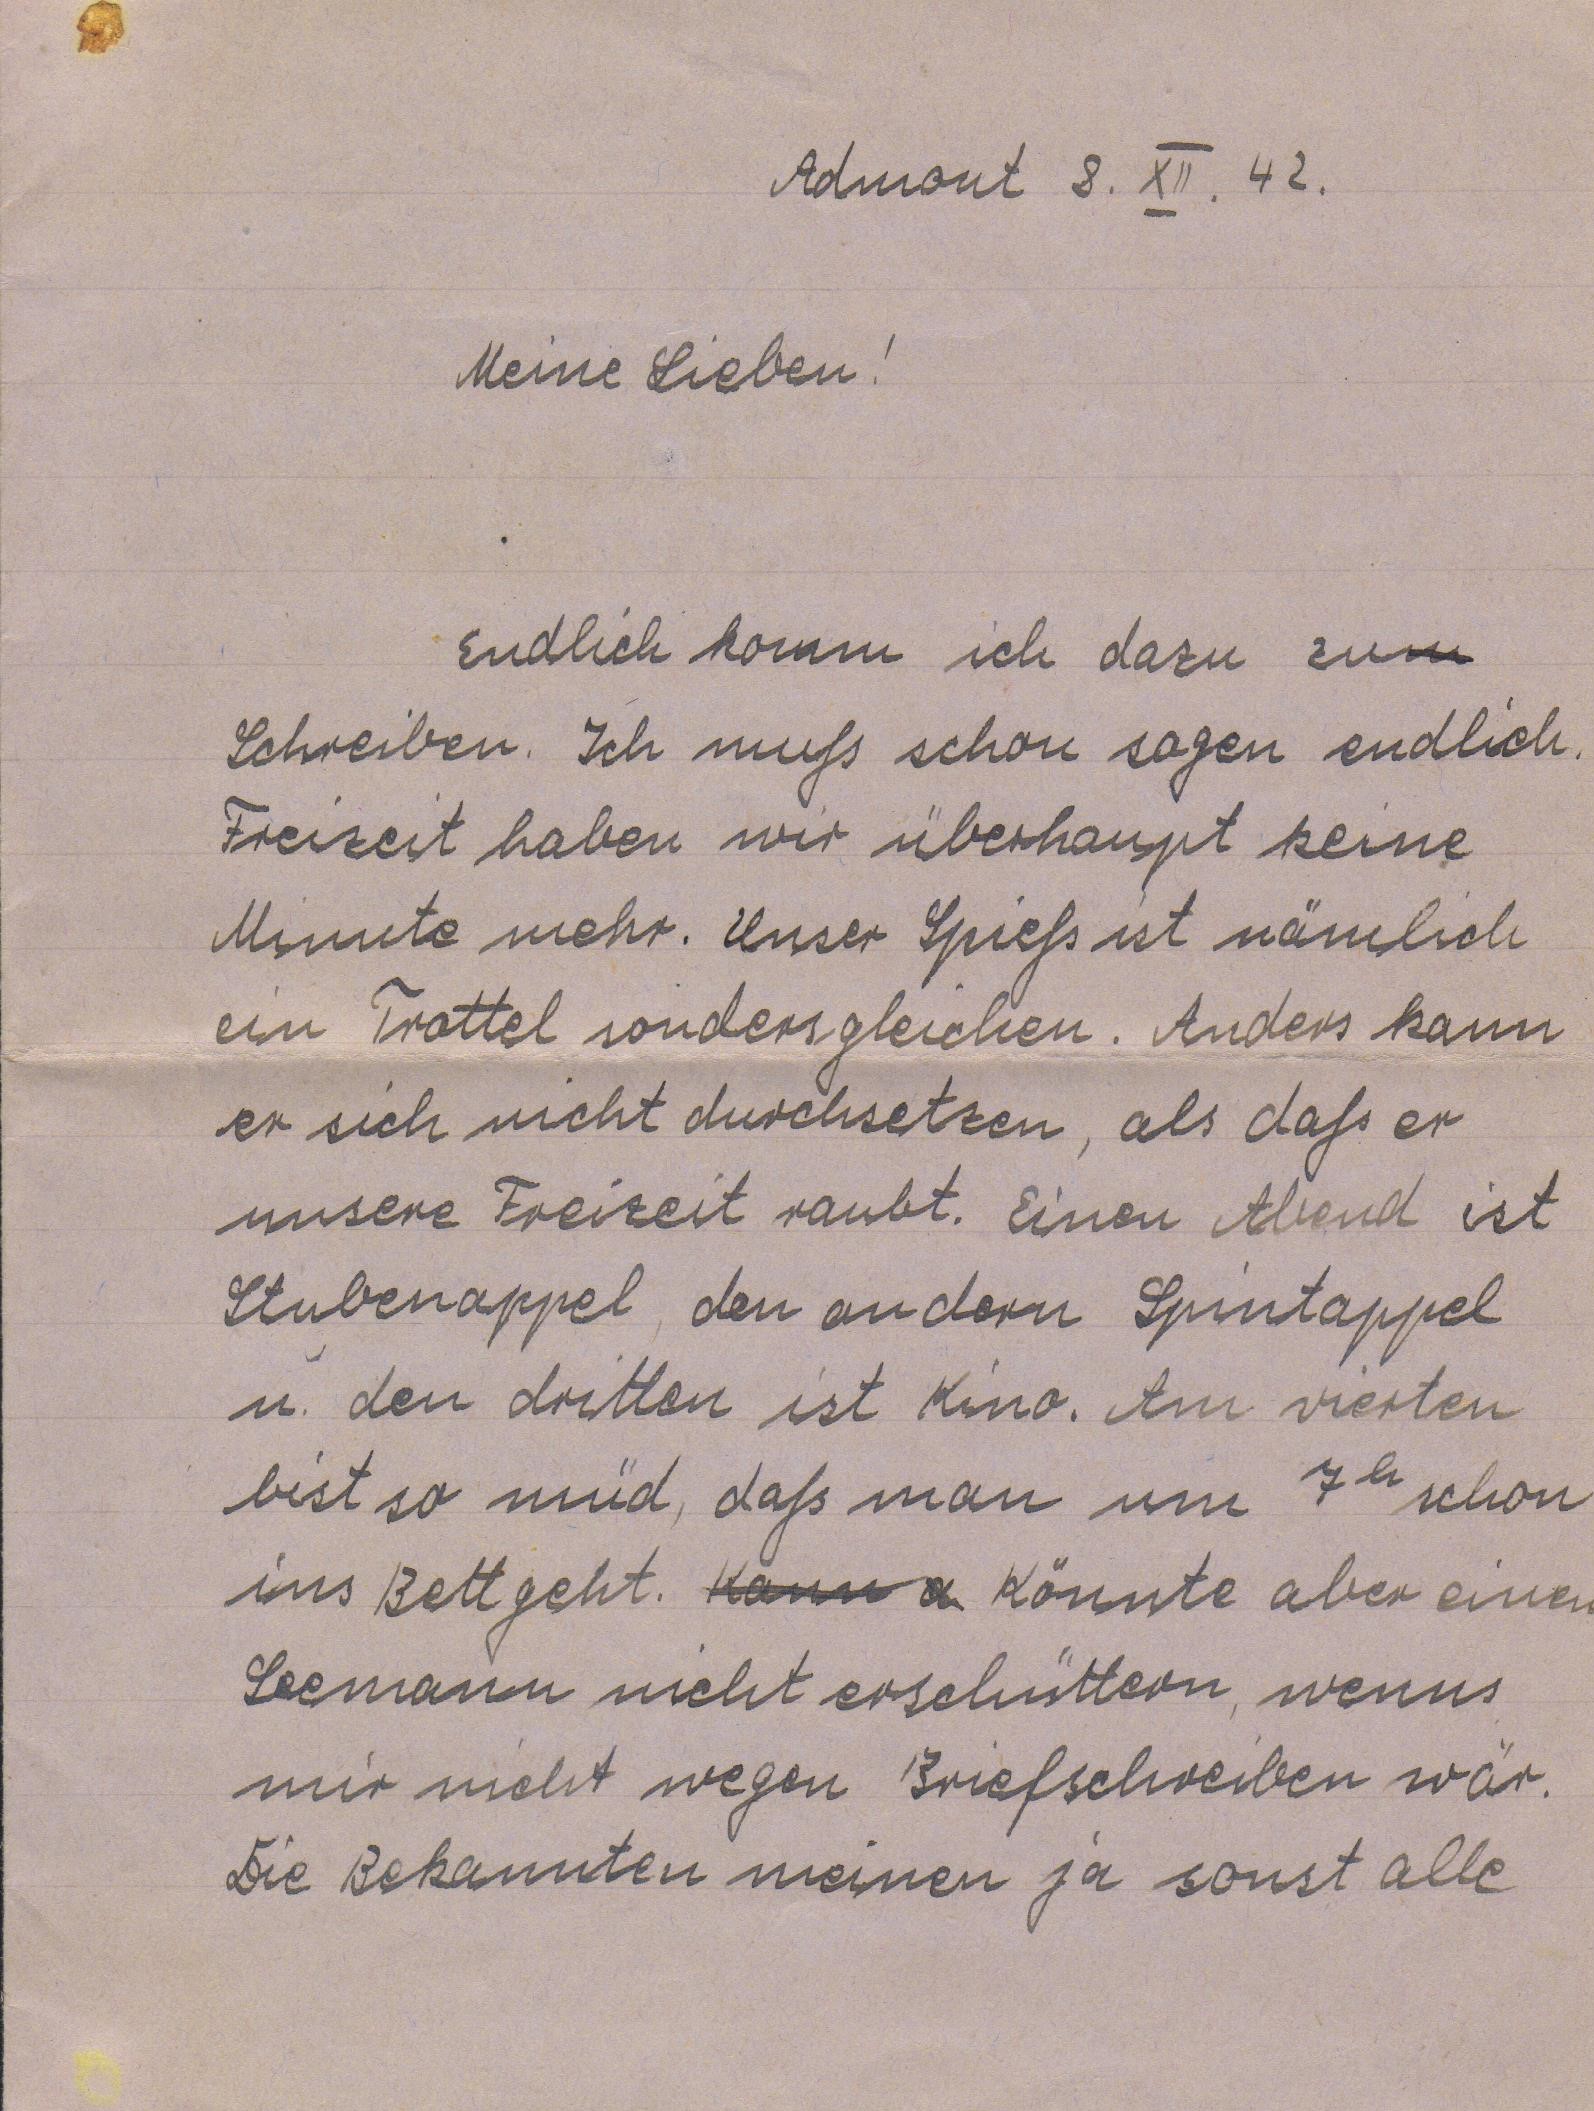 Admont 8. XII. 42.
Meine Lieben!
Endlich komm ich dazu zum
Schreiben. Ich muſs schon sagen endlich.
Freizeit haben wir überhaupt keine
Minute mehr. Unser Spieſs ist nämlich
ein Trottel sondersgleichen. Anders kann
er sich nicht durchsetzen, als daſs er
unsere Freizeit raubt. Einen Abend ist
Stubenappel, den andern Spintappel
u. den dritten ist Kino. Am vierten
bist so müd, daſs man um 7h schon
ins Bett geht. Kann a Könnte aber einen
Seemann nicht erschüttern, wenns
mir nicht wegen Briefschreiben wär.
Die Bekannten meinen ja sonst alle